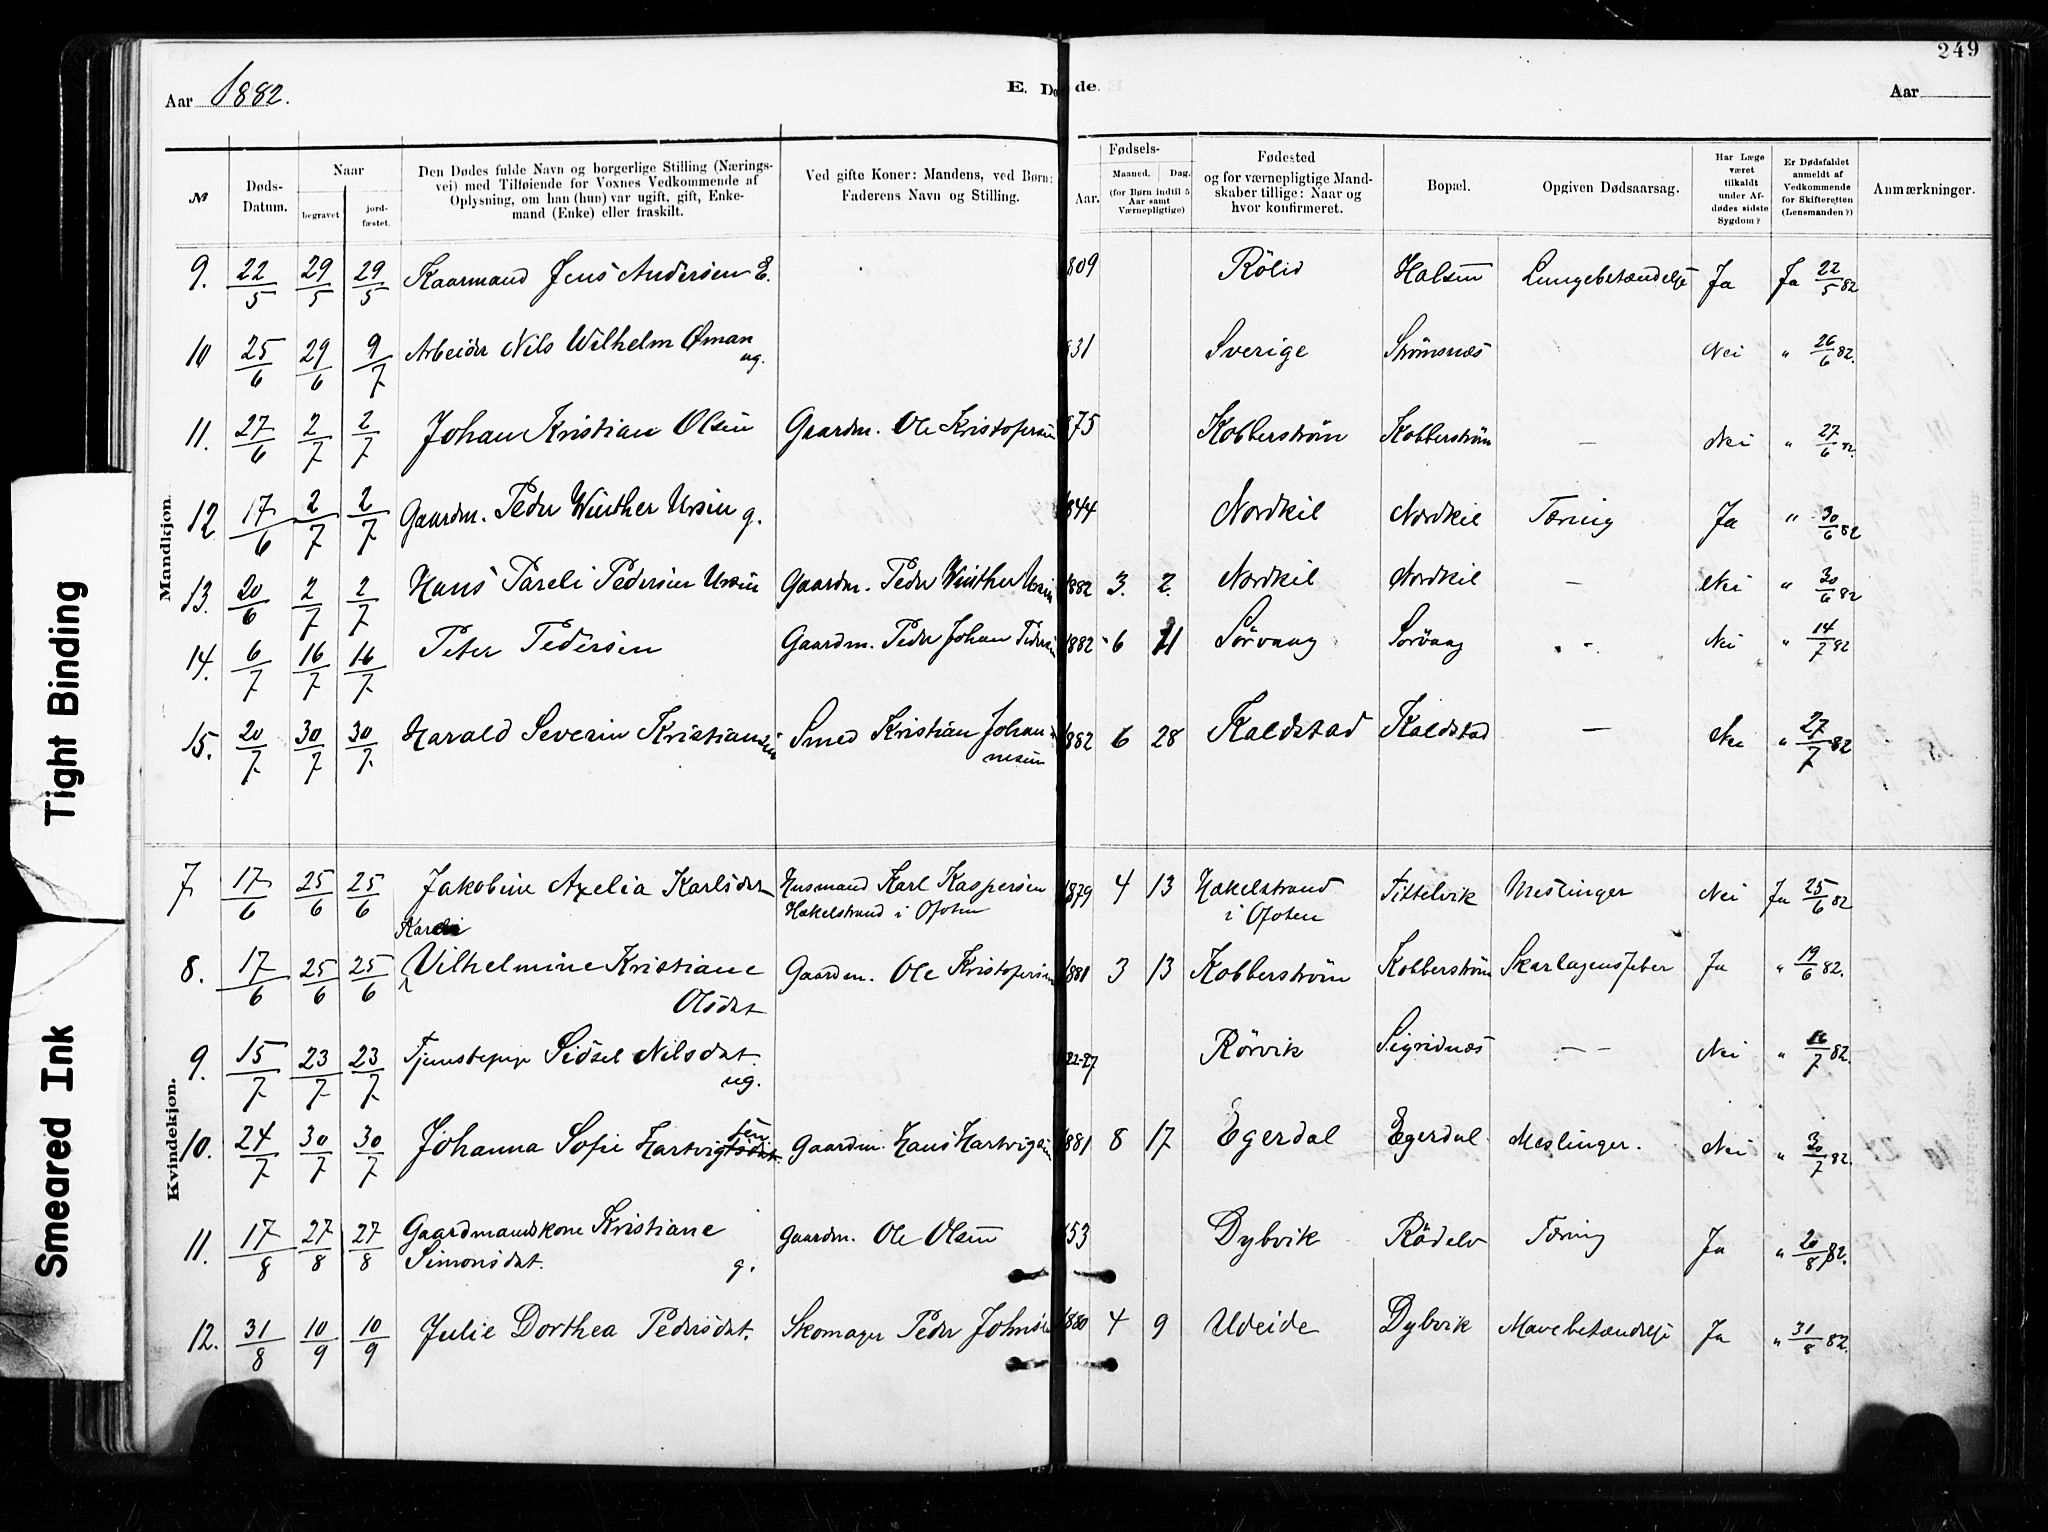 249
Aar 1882.
E. Dø de.
Aar
№
Døds-Datum.
Naar
begravet
jord-fæstet.
Den Dødes fulde Navn og borgerlige Stilling (Nærings-
vei) med Tilføiende for Voxnes Vedkommende af
Oplysning, om han (hun) var ugift, gift, Enke-
mand (Enke) eller fraskilt.
Ved gifte Koner: Mandens, ved Børn:
Faderens Navn og Stilling.
Fødsels-
Aar.
Maaned. Dag.
(for Børn indtil 5
Aar samt
Værnepligtige)
Fødested
og for værnepligtige Mand-
skaber tillige: Naar og
hvor konfirmeret.
Bopæl.
Opgiven Dødsaarsag.
Har Læge
været
tilkaldt
under Af-
dødes sidste
Sygdom?
Er Dødsfaldet
anmeldt af
Vedkommende
for Skifteretten
(Lensmanden?)
Anmærkninger.
Mandkjøn.
9. 22/5 29/5 29/5 Kaarmand Jens Andersen E. 809 Rölid Halsen Lungebetændelse Ja Ja 22/5 82
10 25/6 29/6 9/7 Arbeider Nils Wilhelm Øman ug. 831 Sverige Strömsnæs Nei " 26/6 82.
11. 27/6 2/7 2/7 Johan Kristian Olsen Gaardm. Ole Kristofersen 875 Kobberström Kobberström — Nei " 27/6 82.
12 17/6 2/7 2/7 Gaardm. Peder Winther Ursin g. 1844 Nordkil Nordkil Tæring Ja " 30/6 82
13. 20/6 2/7 2/7 Hans Pareli Pedersen Ursin Gaardm. Peder Winther Ursin 1882 3. 2. Nordkil Nordkil — Nei " 30/6 82
14. 6/7 16/7 16/7 Peter Pedersen Gaardm. Peder Johan Pedersen 1882 6 11 Sörvaag Sörvaag - Nei " 14/7 82
15. 20/7 30/7 30/7 Harald Severin Kristiansen Smed Kristian Johan-
nesen 1882 6 28 Kaldstad Kaldstad — Nei " 27/7 82
Kvindekjøn.
7 17/6 25/6 25/6 Jakobine Axelia Karlsdat Husmand Karl Kaspersen
Hækelstrand i Ofoten 1879 4 13 Hækelstrand
i Ofoten Tittelvik Meslinger Nei Ja 25/6 82
8. 17/6 25/6 25/6 Vilhelmine Kristiane
Olsdat Gaardm. Ole Kristofersen 1881 3 13 Kobberström Kobberström Skarlagensfeber Ja " 19/6 82.
9. 15/7 23/7 23/7 Tjenestepige Sidsel Nilsdat.
ug. 22-27 Rörvik Sigridnæs — - Nei " 16/7 82.
10. 24/7 30/7 30/7 Johanna Sofie Hartvigsen Gaardm. Hans Hartvigsen 1881 8 17 Egerdal Egerdal Meslinger. Nei " 30/7 82.
11. 17/8 27/8 27/8 Gaardmandskone Kristiane
Simonsdat. g. Gaardm. Ole Olsen 53 Dybvik Rödelv Tæring Ja " 20/8 82.
12. 31/8 10/9 10/9 Julie Dorthea Pedersdat. Skomager Peder Johnsen 1880 4 9 Udeide Dybvik Mavebetændelse Ja " 31/8 82.
Tight Binding
Smeared Ink